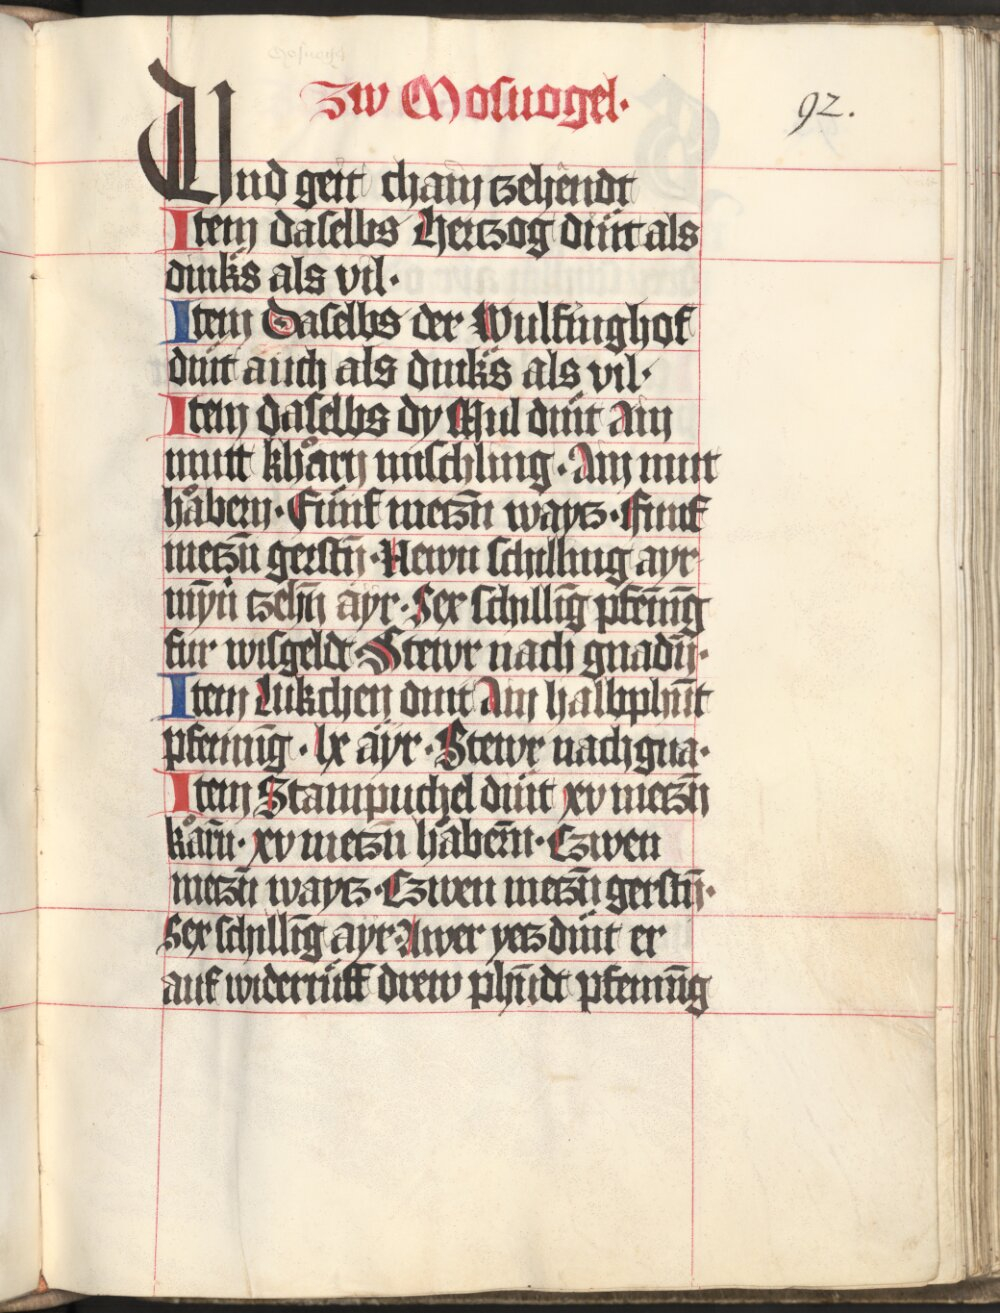 zw Mosuogel·
92.
Und geit chain tzehendt
Item daselbs Hertzog diint als
diniks als vil·
Item Daselbs der Wulfinghof
dint auch als diniks als vil·
Item daselbs dy Mul diint Ain
mutt khårn mischling· Ain mutt
håbern· Fünf metzn̄ waytz· funf
metzn̄ gerstn̄· Newn schilling ayr
myn̄ tzehn̄ äyr· Sex schilling pfening
fur wisgeldt Stewr nach gnadn̄·
Item Lukchen dint Ain halbphunt
pfenning· lx äyr· Stewr nach gna·
Item Stampuchel dint xv metzn̄
kårn̄· xv metzn̄ habern̄· Czwen
metzn̄ waytz· Czwen metzn̄ gerstn̄·
Sex schilling ayr· Awer yetz diint er
auf widerrüff drew phundt pfenning